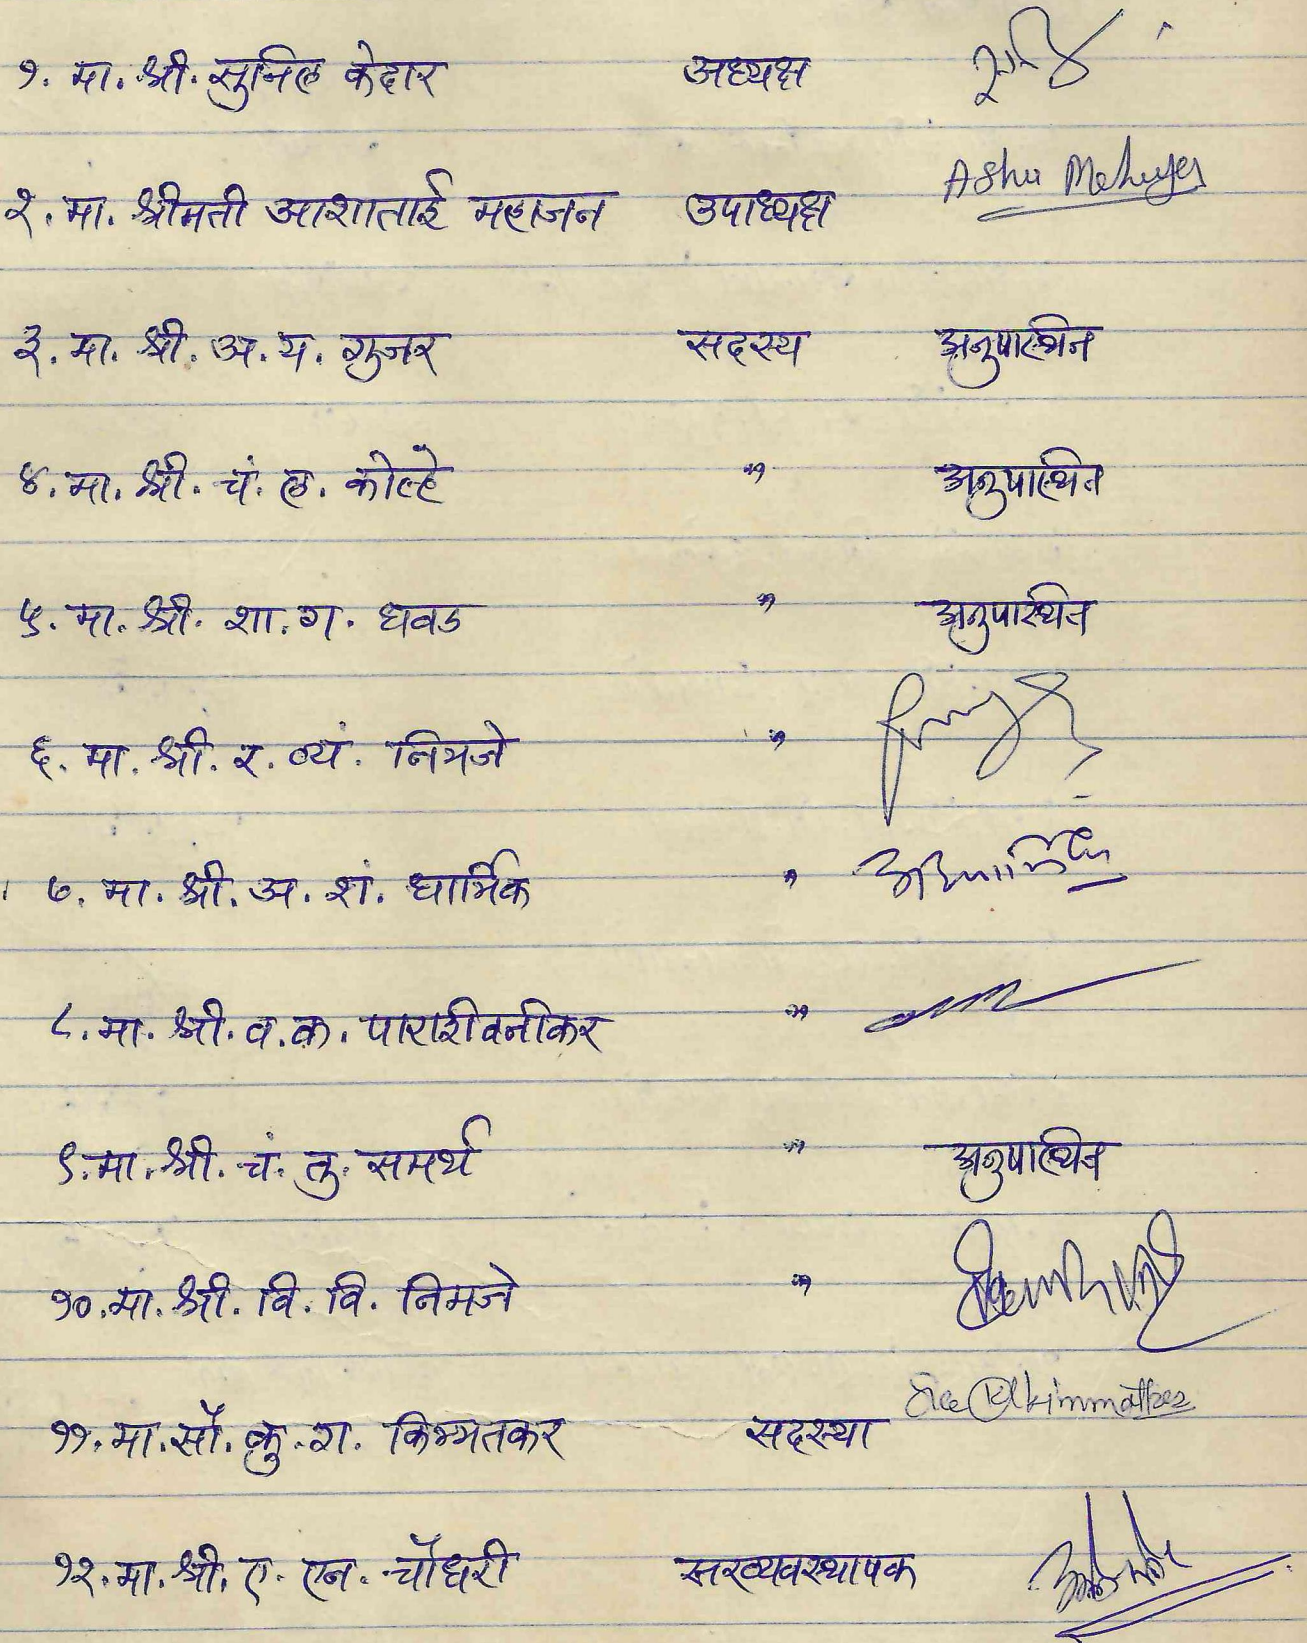 १. मा. श्री. सुनिल केदार अध्यक्ष
२. मा. श्रीमती आशाताई महाजन उपाध्यक्ष Asha
३. मा. श्री. अ. य. गुजर सदस्य अनुपास्थित
४. मा. श्री. चं. ल. कोल्हे " अनुपास्थित
५. मा. श्री. शा. ग. धवड " अनुपास्थित
६. मा. श्री. र. व्यं. निमजे "
७. मा. श्री. अ. शं. धार्मिक "
८. मा. श्री. व. क. पाराशीवनीकर "
९. मा. श्री. चं. तु. समर्थ " अनुपास्थित
१०. मा. श्री. वि. वि. निमजे "
११. मा. सौ. कु. ग. किम्मतकर सदस्या
१२. मा. श्री. ए. एन. चौधरी सरव्यवस्थापक